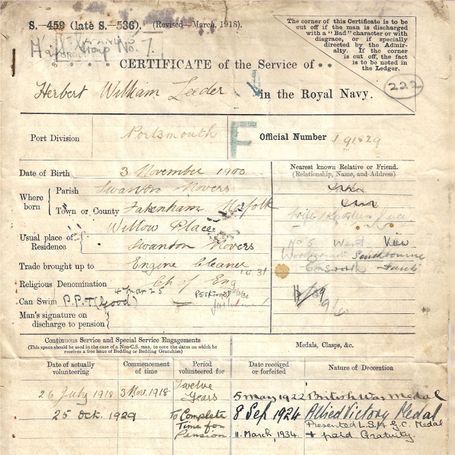 S.—459 (late S.—536). (Revised—March, 1918).
The corner of this Certificate is to be
cut off if the man is discharged
with a "Bad" character or with
disgrace, or if specially
directed by the Admir-
alty. If the corner
is cut off, the fact
is to be noted in
the Ledger.
222
CERTIFICATE of the Service of
Herbert William Leeder
in the Royal Navy.
Port Division
Portsmouth
F
Official Number
Date of Birth
3 November 1900
Nearest known Relative or Friend.
(Relationship, Name, and Address)
Where born
Parish
Swanton Novers
Town or County
Fakenham Norfolk
Usual place of Residence
Willow Place
Swanton Novers
No 5 West View
Emsworth
Trade brought up to
Engine Cleaner
Religious Denomination
Ch of Eng
Can Swim
P.P.T (Good)
Man's signature on
discharge to pension
Continuous Service and Special Service Engagements
(This space should be used in the case of a Non-C.S. man, to note the dates on which he
receives a free issue of Bedding or Bedding Gratuities)
Medals, Clasps, &c.
Date of actually
volunteering
Commencement
of time
Period
volunteered for
Date received
or forfeited
Nature of Decoration
26 July 1918 3 Nov. 1918 Twelve Years
5 May 1922 British War Medal
25 Oct. 1929 To Complete Time for Pension
8 Sep 1924 Allied Victory Medal
Presented L.S. & G.C. Medal
11 March, 1934. + paid Gratuity.